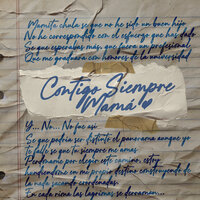 Mamita chula se que no he sido un buen hijo
No he correspondido con el esfuerzo que has dado
Se que esperabas más que fuera un profesional
Que me graduara con honores de la universidad
Contigo Siempre
Mamá
Y... No... No fue así
Se que podría ser distinto el panorama aunque yo
te falle se que tu siempre me amas
Perdóname por elegir este camino, estoy
hundiéndome en mi propio destino construyendo de
la nada sacando coordenadas
En cada rima las lágrimas se derraman...